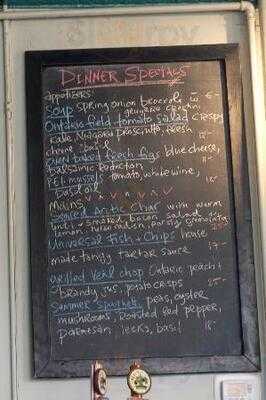 DINNER SPECIALS
appetizers:
Soup spring onion broccoli w 6-
gruyere crostini
Ontario field tomato salad crisps
kale Niagara Prosciutto, fresh
cheese basil
oven baked fresh figs blue cheese,
balsamic reduction
P.E.I. mussels tomato, white wine,
basil oil
Mains
Seared Arctic Char with warm
lentil + smoked bacon salad
lemon horse radish, parsley gremolata
Universal Fish + Chips house
made tangy tartar sauce 17-
Grilled Veal chop Ontario peach +
brandy jus, potato crisps
Summer Spaghetti peas, oyster
mushrooms, Roasted Red pepper,
parmesan, leeks, basil